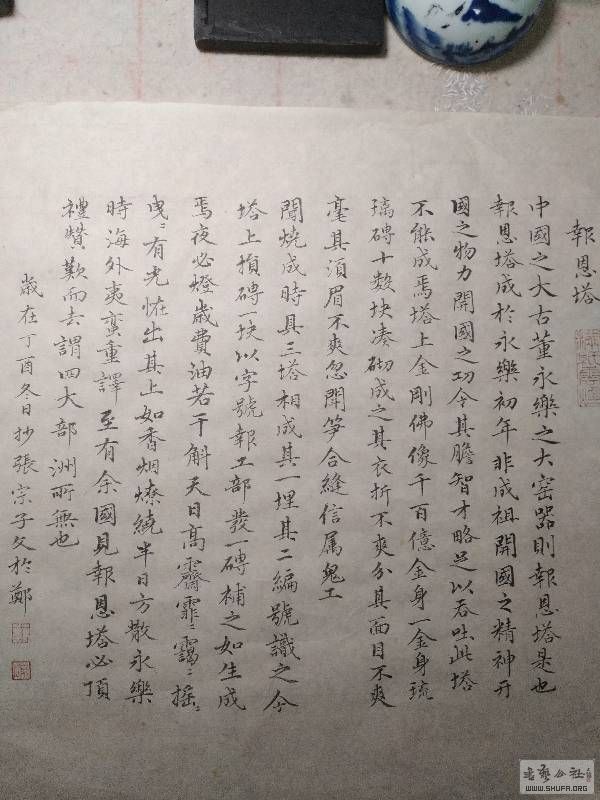 報恩塔
中國之大古董永樂之大窑器則報恩塔是也
報恩塔成於永樂初年非成祖開國之精神开
國之物力開國之功令其膽智才略足以吞吐此塔
不能成焉塔上金剛佛像千百億金身一金身琉
璃磚十數块凑砌成之其衣折不爽分其面目不爽
毫其須眉不爽忽聞笋合縫信属鬼工
聞燒成時具三塔相成其一埋其二編號識之今
塔上損磚一块以字號報工部發一磚補之如生成
焉夜必燈歲費油若干斛天日高霽霏〻靄〻摇〻
曳〻有光怪出其上如香烟燎繞半日方散永樂
時海外夷蛮重譯至有余國見報恩塔必頂
禮贊歎而去謂四大部洲所無也
歲在丁酉冬日抄張宗子文於鄭
书艺公社
WWW.SHUFA.ORG